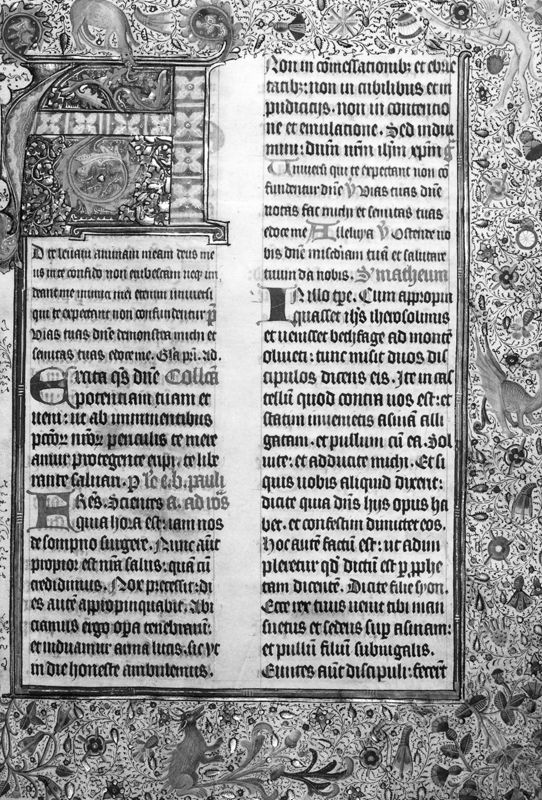 A
D te levavi animam meam deus me
us in te confido non erubescam neqȝ irri
deant me inimici mei etenim universi
qui te expectant non confundentur ps
vias tuas dñe demonstra michi et
semitas tuas edoce me. Gl̃a pr̃i. ad.
Excita qs̃ dñe Collecta
potentiam tuam et
veni: ut ab imminentibus
pctõr nr̃or periculis te mere
amur protegente eripi. te libe
rante saluari. P le. e. b. pauli
Res. Scientes a. ad roos
quia hora est: iam nos
de sompno surgere. Nunc aut̃
propior est nr̃a salus: quam cũ
credidimus. Nox precessit: di
es autẽ appropinquabit. Abi
ciamus ergo opa tenebrarum:
et induamur arma lucis. sic vt
in die honeste ambulemus.
Non in cõmessationibȝ et ebrie
tatibȝ: non in cubilibus et in
pudicicijs. non in contentio
ne et emulatione. Sed indui
mini: dñm nr̃m ihm xpm̃
Uniuersi qui te expectant non cõ
fundentur dñe V Vias tuas dñe
notas fac michi et semitas tuas
edoce me Alleluya V Ostende no
bis dñe misc̃diam tuã et salutare
tuum da nobis. S' matheum
In illo tp̃e. Cum appropin
quasset ihs̃ iherosolimis
et uenisset bethfage ad montẽ
oliueti: tunc misit duos dis
cipulos dicens eis. Ite in cas
tellũ quod contra uos est: et
statim inuenietis asinam alli
gatam. et pullum cũ ea. Sol
uite: et adducite michi. Et si
quis uobis aliquid dixerit:
dicite quia dñs hijs opus ha
bet. et confestim dimittet eos.
Hoc autẽ factũ est: ut adim
pleretur qđ dictũ est p pphe
tam dicentẽ. Dicite filie syon.
Ecce rex tuus uenit tibi man
suetus et sedens sup asinam:
et pullũ filiũ subiugalis.
Euntes aut̃ discipuli: fecer̃t